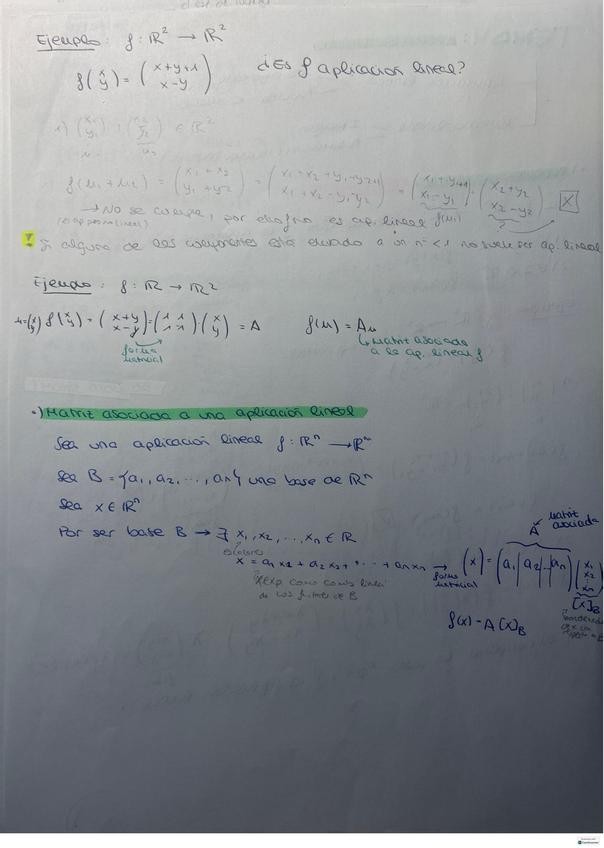 Ejemplo: f: ℝ² → ℝ²
f(x y) = (x+y+1 x-y) ¿Es f aplicación lineal?
1) (x₁ y₁) , (x₂ y₂) ∈ ℝ²
u₂
f(u₁+u₂) = (x₁+x₂ y₁+y₂) = (x₁+x₂+y₁+y₂+1 x₁+x₂-y₁-y₂) = (x₁+y₁+1 x₁-y₁) + (x₂+y₂ x₂-y₂) ☒
→ No se cumple, por es ap. lineal f(u₁) ?
! Si alguna de las componentes está elevado a un nº<1 no suele ser ap. lineal
Ejemplo: f: ℝ → ℝ²
u=(x y) f(x y) = (x+y x-y) = (1 1 1 -1) (x y) = A f(u) = Au
forma matricial
↳ Matriz asociada
a la ap. lineal f
•) Matriz asociada a una aplicación lineal
Sea una aplicación lineal f: ℝⁿ → ℝᵐ
Sea B = {a₁, a₂, ..., aₙ} una base de ℝⁿ
Sea x ∈ ℝⁿ
Por ser base B → ∃ x₁, x₂, ..., xₙ ∈ ℝ
escalares
Matriz asociada
A
x = a₁x₁ + a₂x₂ + ... + aₙxₙ → forma matricial (x) = (a₁ | a₂ | ... | aₙ) (x₁ x₂ ⋮ xₙ)
x exp como comb lineal
de los de B
[x]_B
f(x) = A[x]_B